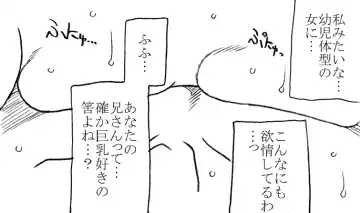 私みたいな…
幼児体型の
女に…
ぷちゅっ
こんなにも
欲情してるわ
…っ
ふふ…
あなたの
兄さんって…
確か巨乳好きの
筈よね…？